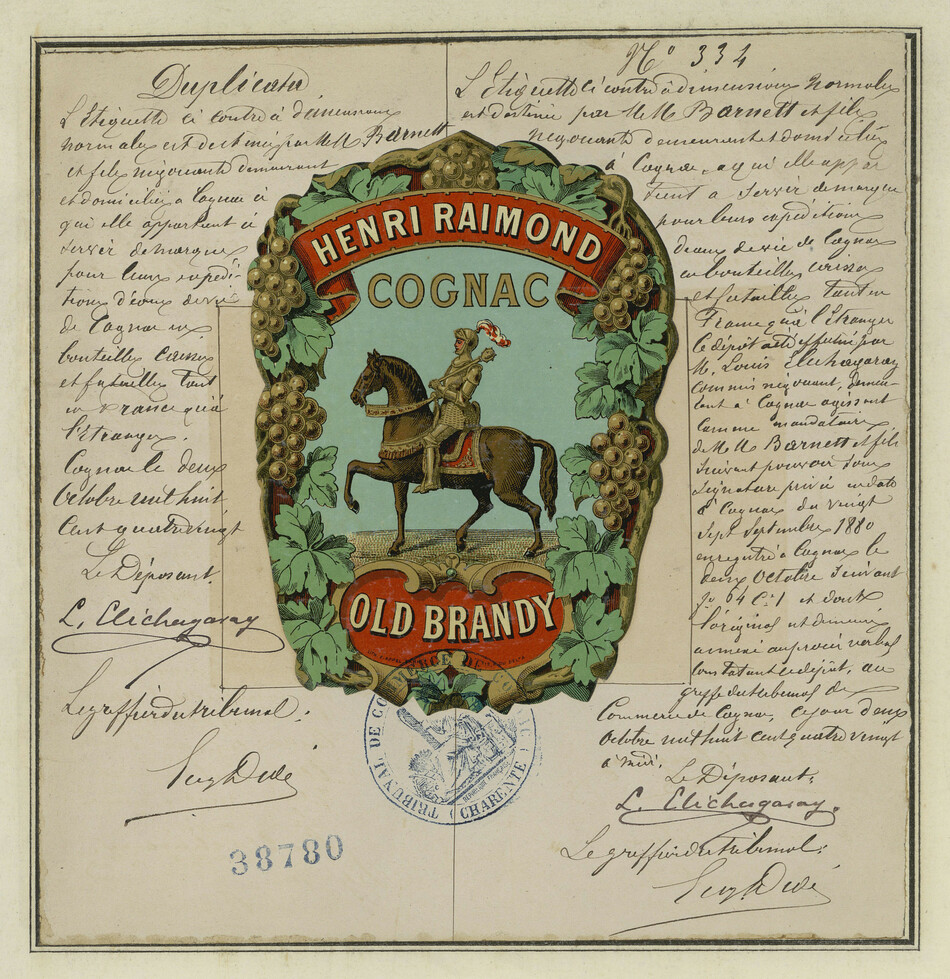 Duplicata
L'Etiquette ci contre à dimensions
normales est destinée par M M Barnett
et fils négociants demeurant
et domiciliés à Cognac à
qui elle appartient à
servir de marque
pour leurs expédi-
tions d'eaux de vie
de Cognac en
bouteilles caisses
et futailles tant
en France qu'à
l'étranger.
Cognac le deux
Octobre mil huit
cent quatre vingt
Le Déposant
L. Elichagaray
Le greffier du tribunal:
N° 334
L'Etiquette ci contre à dimensions normales
est destinée par M M Barnett et fils
négociants demeurant et domiciliés
à Cognac, à qui elle appar
tient à servir de marque
pour leurs expéditions
d'eaux de vie de Cognac
en bouteilles caisses
et futailles tant en
France qu'à l'étranger
le dépôt a été effectué par
M. Louis Elichagaray
commis négociant, demeu-
rant à Cognac agissant
comme mandataire
de M M Barnett et fils
suivant pouvoir sous
signature privée en date
à Cognac du vingt
sept Septembre 1880
enregistré à Cognac le
deux Octobre suivant
f° 64 C 1 et dont
l'original est demeuré
annexé au procès verbal
constatant le dépôt, au
greffe du tribunal de
Commerce de Cognac, ce jour deux
Octobre mil huit cent quatre vingt
à midi.
Le Déposant,
L. Elichagaray
Le greffier du tribunal:
HENRI RAIMOND
COGNAC
OLD BRANDY
TRIBUNAL DE COMMERCE DE
CHARENTE
38780